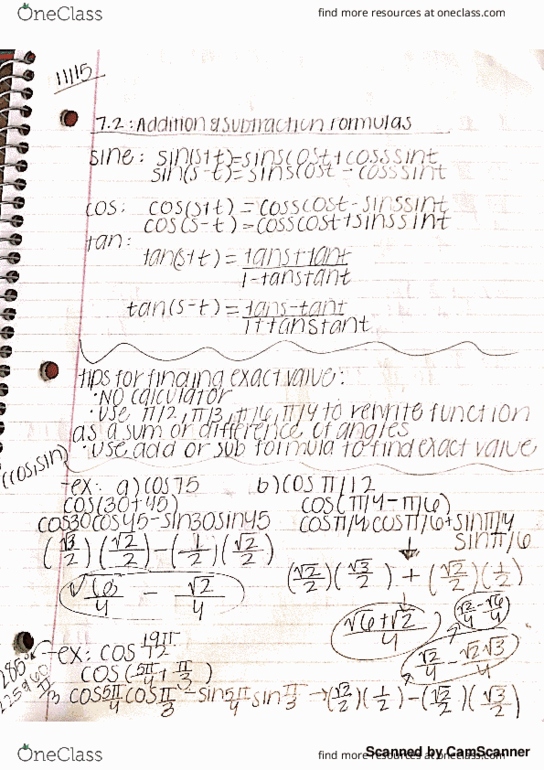 OneClass
find more resources at oneclass.com
11/15
7.2: Addition & subtraction formulas
sine: sin(s+t)=sinscost+cosssint
sin(s-t)=sinscost-cosssint
cos: cos(s+t)=cosscost-sinssint
cos(s-t)=cosscost+sinssint
tan:
tan(s+t)=tans+tant
1-tanstant
tan(s-t)=tans-tant
1+tanstant
tips for finding exact value:
·NO calculator
·use π/2, π/3, π/6, π/4 to rewrite function
as a sum or difference of angles
·use add or sub formula to find exact value
(cos,sin)
-ex: a) cos75 b) cos π/12
cos(30+45) cos(π/4-π/6)
cos30cos45-sin30sin45 cosπ/4cosπ/6+sinπ/4
sinπ/6
(√3/2)(√2/2)-(1/2)(√2/2)
(√2/2)(√3/2)+(√2/2)(1/2)
√6/4 - √2/4
√6+√2/4
√2/4-√6/4
√2/4-√2√3/4
-ex: cos 19π/12
285°
225+60
π/3
cos(5π/4+π/3)
cos5π/4cosπ/3-sin5π/4sinπ/3 →(√2/2)(1/2)-(√2/2)(√3/2)
OneClass
find more resources at oneclass.com
Scanned by CamScanner